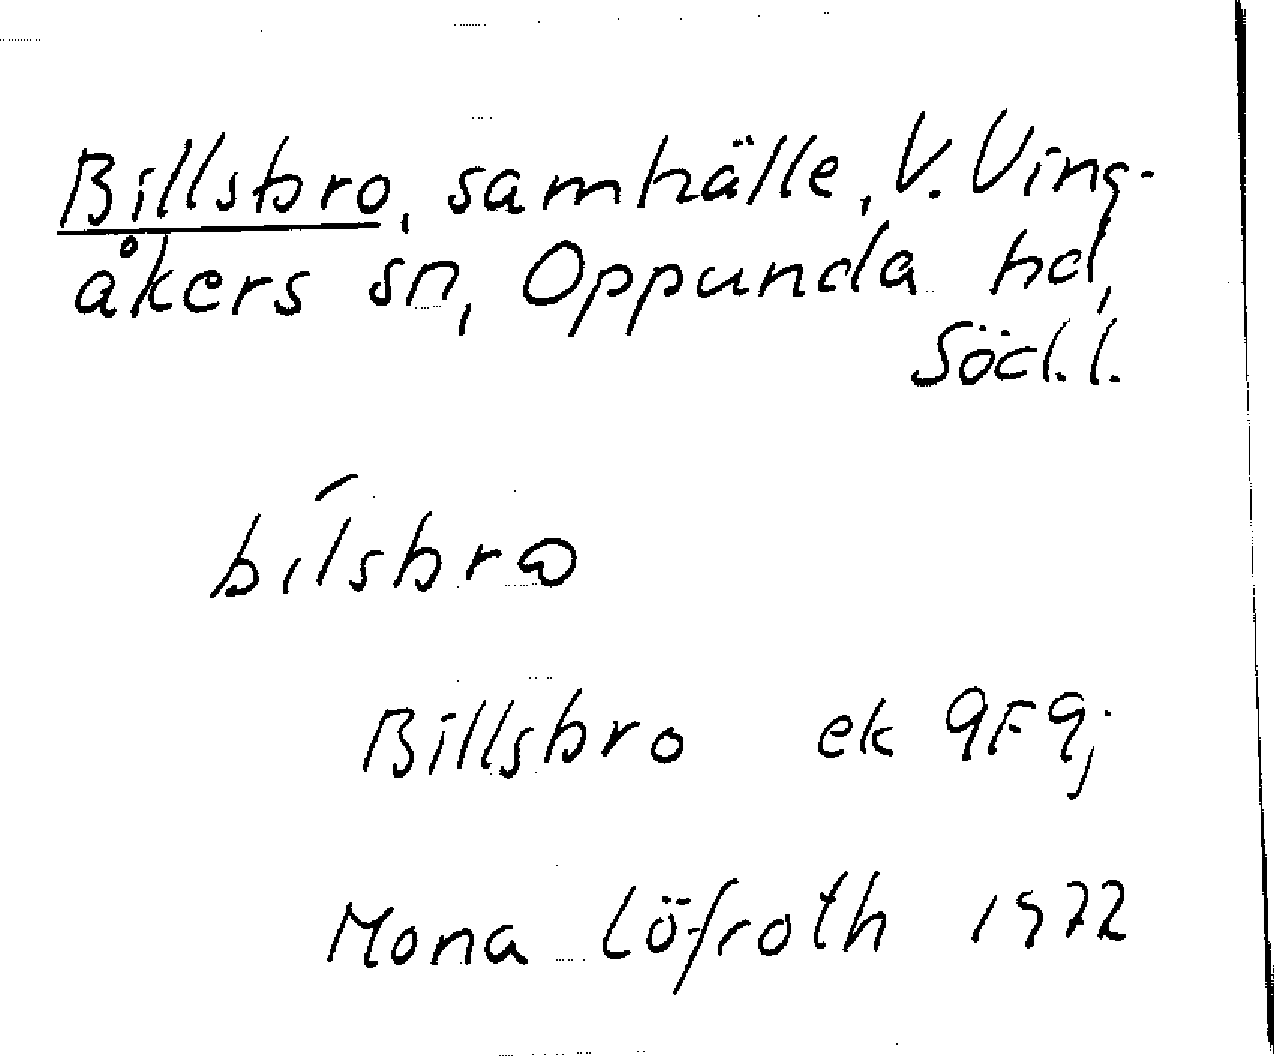 Billsbro, samhälle, V. Ving-
åkers sn, Oppunda hd,
Söd.l.
bilsbro
Billsbro ek 9F9j
Mona Löfroth 1972